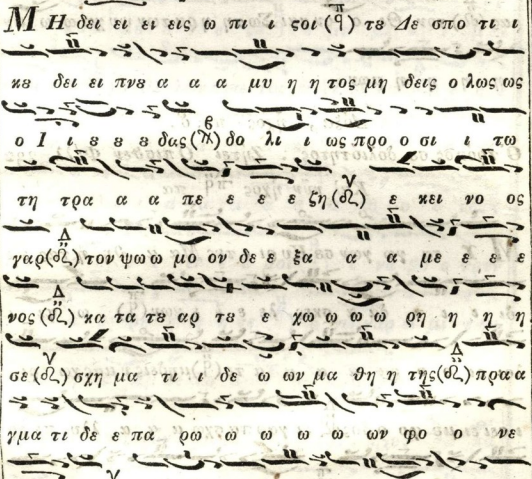 ΜΗ δει ει ει εις ω πι ι ςοι (ϥ) τȣ Δε σπο τι ι
κȣ δει ει πνȣ α α α μυ η η τος μη δεις ο λως ως
ο Ι ι ȣ ȣ ȣ δας () δο λι ι ως προ ο σι ι τω
τη τρα α α πε ε ε ε ζη () ε κει νο ος
γαρ () τον ψω ω μο ον δε ε ξα α α με ε ε ε
νος () κα τα τȣ αρ τȣ ε χω ω ω ω ρη η η η
σε () σχη μα τι ι δε ω ων μα θη η της () πρα α
γμα τι δε ε πα ρω ω ω ω ω ων φο ο νε